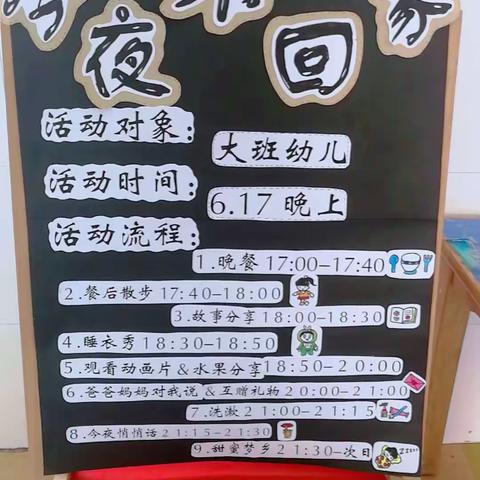 夜 回家
活动对象:
大班幼儿
活动时间:
6.17 晚上
活动流程:
1.晚餐 17:00-17:40
2.餐后散步 17:40-18:00
3.故事分享 18:00-18:30
4.睡衣秀 18:30-18:50
5.观看动画片&水果分享18:50-20:00
6.爸爸妈妈对我说&互赠礼物 20:00-21:00
7.洗漱 21:00-21:15
8.今夜悄悄话 21:15-21:30
9.甜蜜梦乡21:30-次日